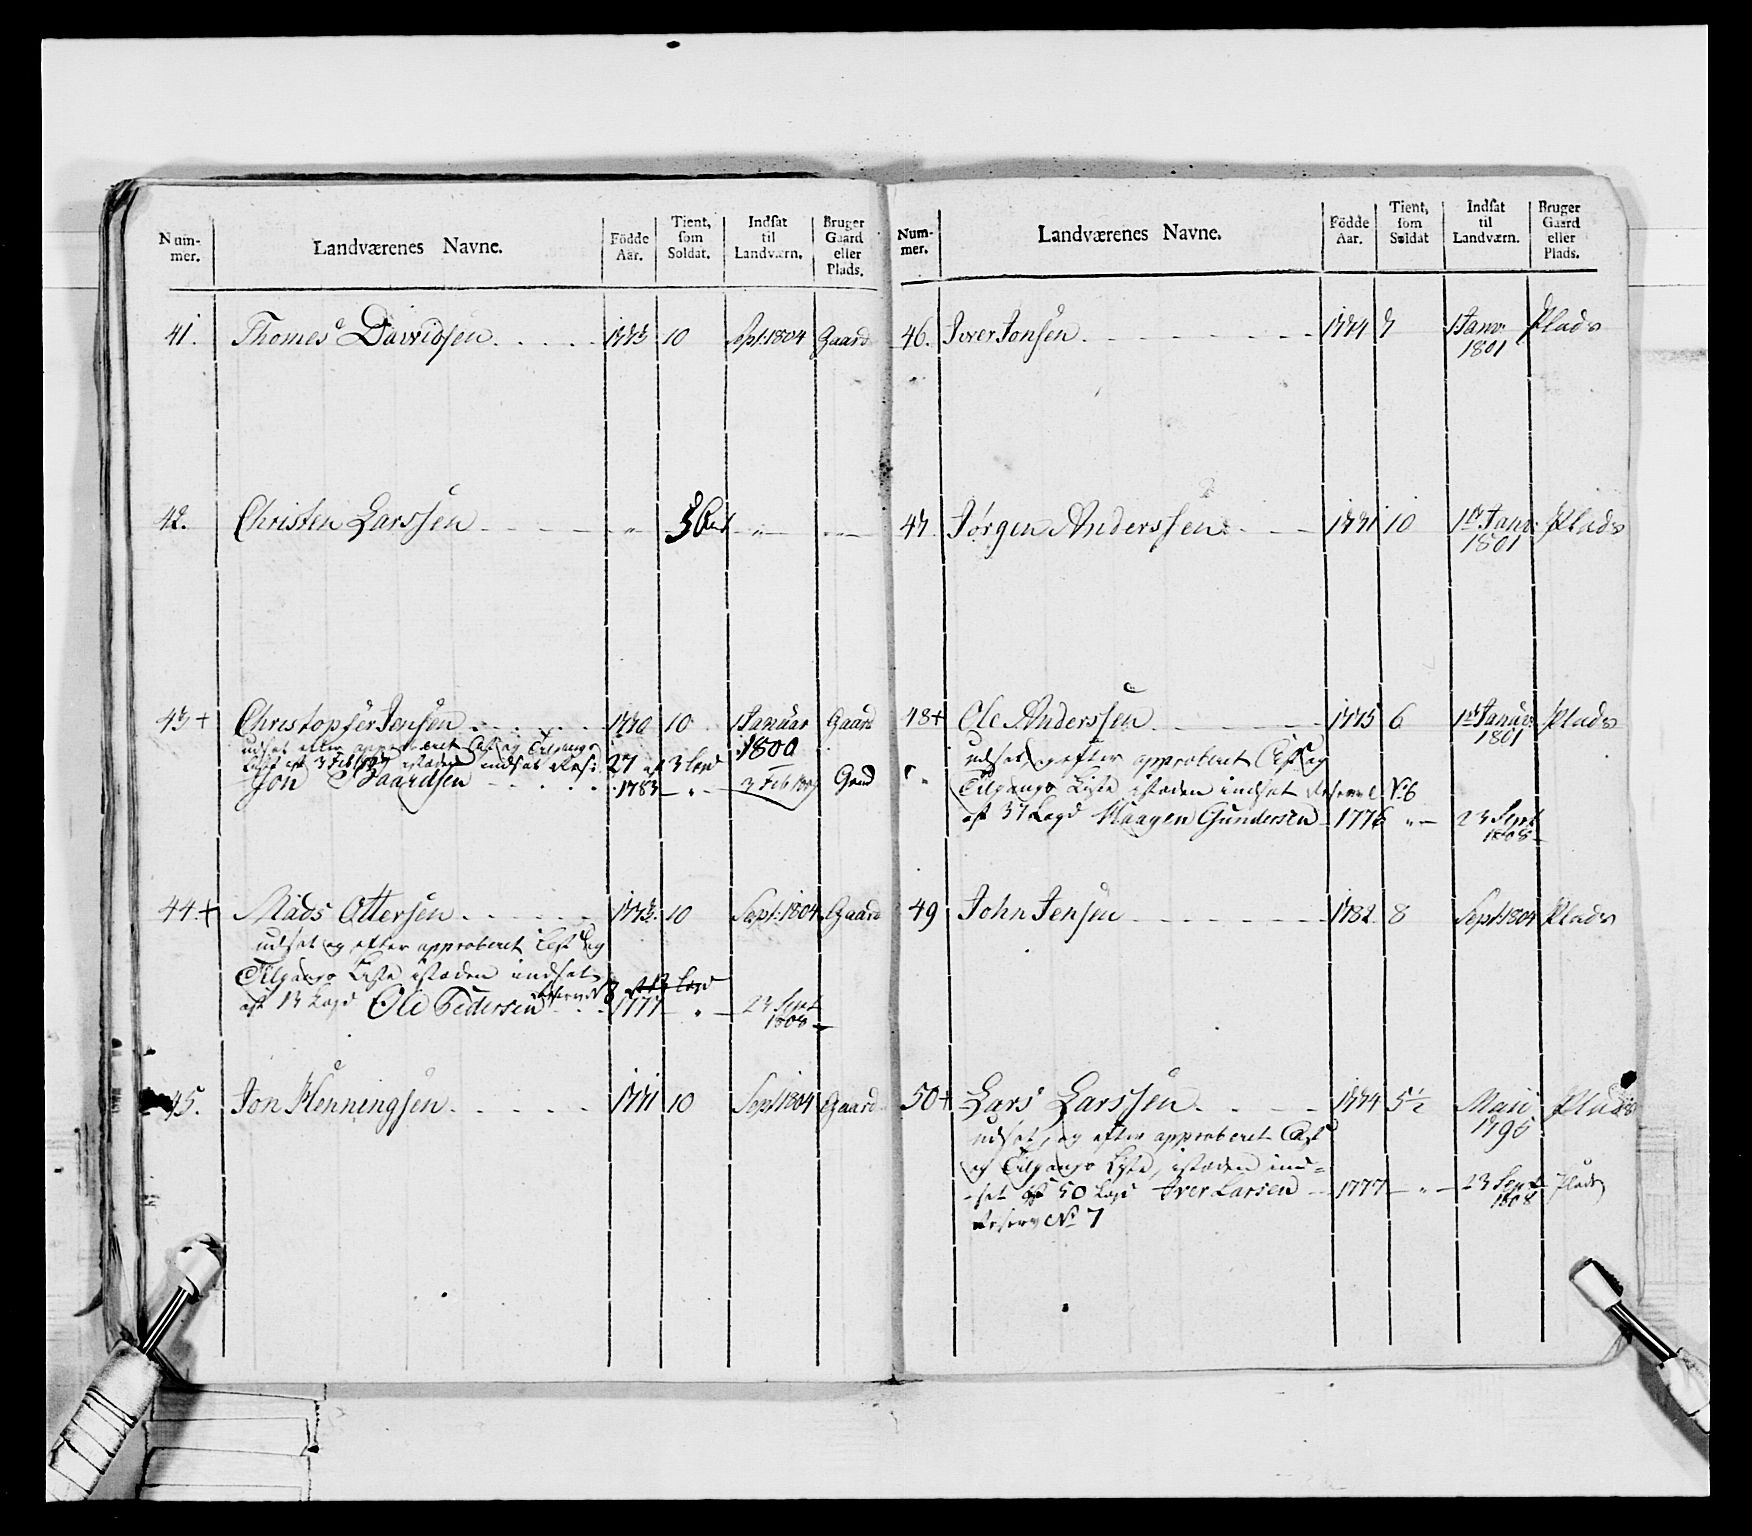 Num-
mer.
Landværenes Navne.
Födde
Aar.
Tient,
som
Soldat.
Indsat
til
Landværn.
Bruger
Gaard
eller
Plads.
41. Thomes Davidsen 1773 10 Sept: 1804 Gaard
42. Christen Larssen
43 + Christopfer Jensen 1770 10 1 Januar Gaard
1800
udsat efter approberet Af og Tilgangs
Liste 3 Feb istæden indsat Res: 27 af 3 Legd
Jon Baardsen 1783 3 Feb Gaard
44 + Mads Ottersen 1773 10 Sept: 1804 Gaard
udsat og efter approberet Af og
Tilgangs Liste istæden indsat
af 13 Legd Ole Pedersen 1777 23 Sept
1808
45. Jon Henningsen 1771 10 Sept 1804 Gaard
Num-
mer.
Landværenes Navne.
Födde
Aar.
Tient,
som
Soldat
Indsat
til
Landværn.
Bruger
Gaard
eller
Plads.
46. Iver Jonsen 1774 7 1 Janv: Plads
1801
47. Jørgen Anderssen 1771 10 1 Janv: Plads
1801
48 + Ole Anderssen 1775 6 1 Janv: Plads
1801
udsat, og efter approberet Af og
Tilgangs Liste istæden indsat Reserve No 6
af 37 Legd Haagen Gundersen 1776 23 Sept
1808
49 John Jensen 1782 8 Sept 1804 Plads
50 + Lars Larssen 1774 5½ Maii Plads
1795
udsat, og efter approberet Af
og Tilgangs Liste, istæden ind=
-sat af 50 Legd Iver Larsen 1777 23 Sept Plads
1808
Reserv No 7